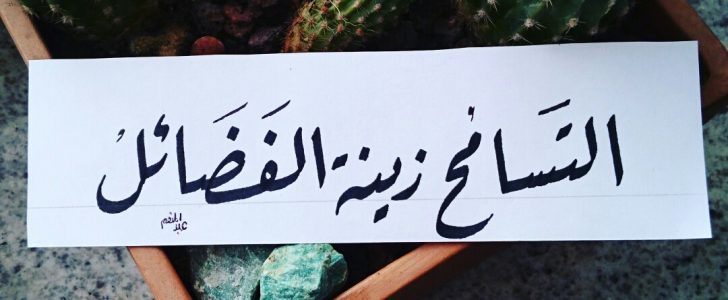 التسَامُح زينة الفَضَائلُ
عبد المنعم